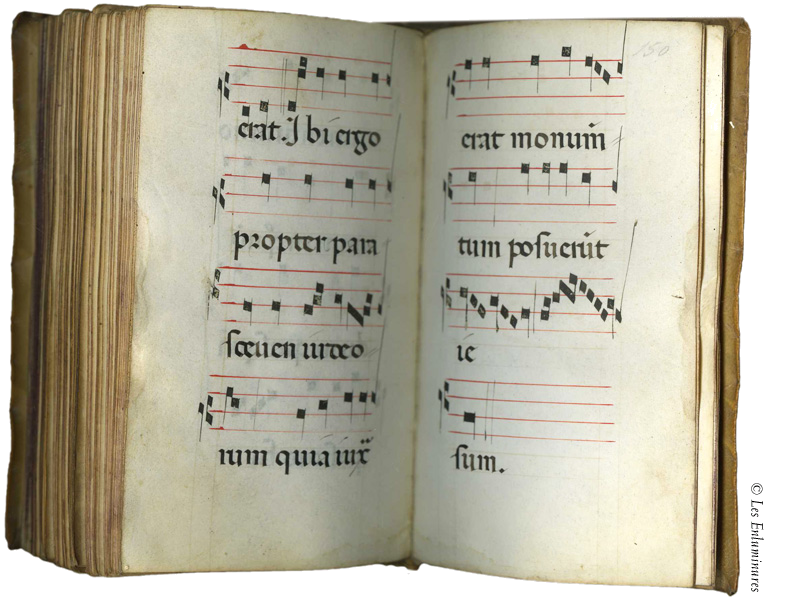 erat. I bi ergo
propter para
sceuen iudeo
rum quia iuxͣ
150
erat monum̄
tum posuerūt
ie
sum.
© Les Enluminures